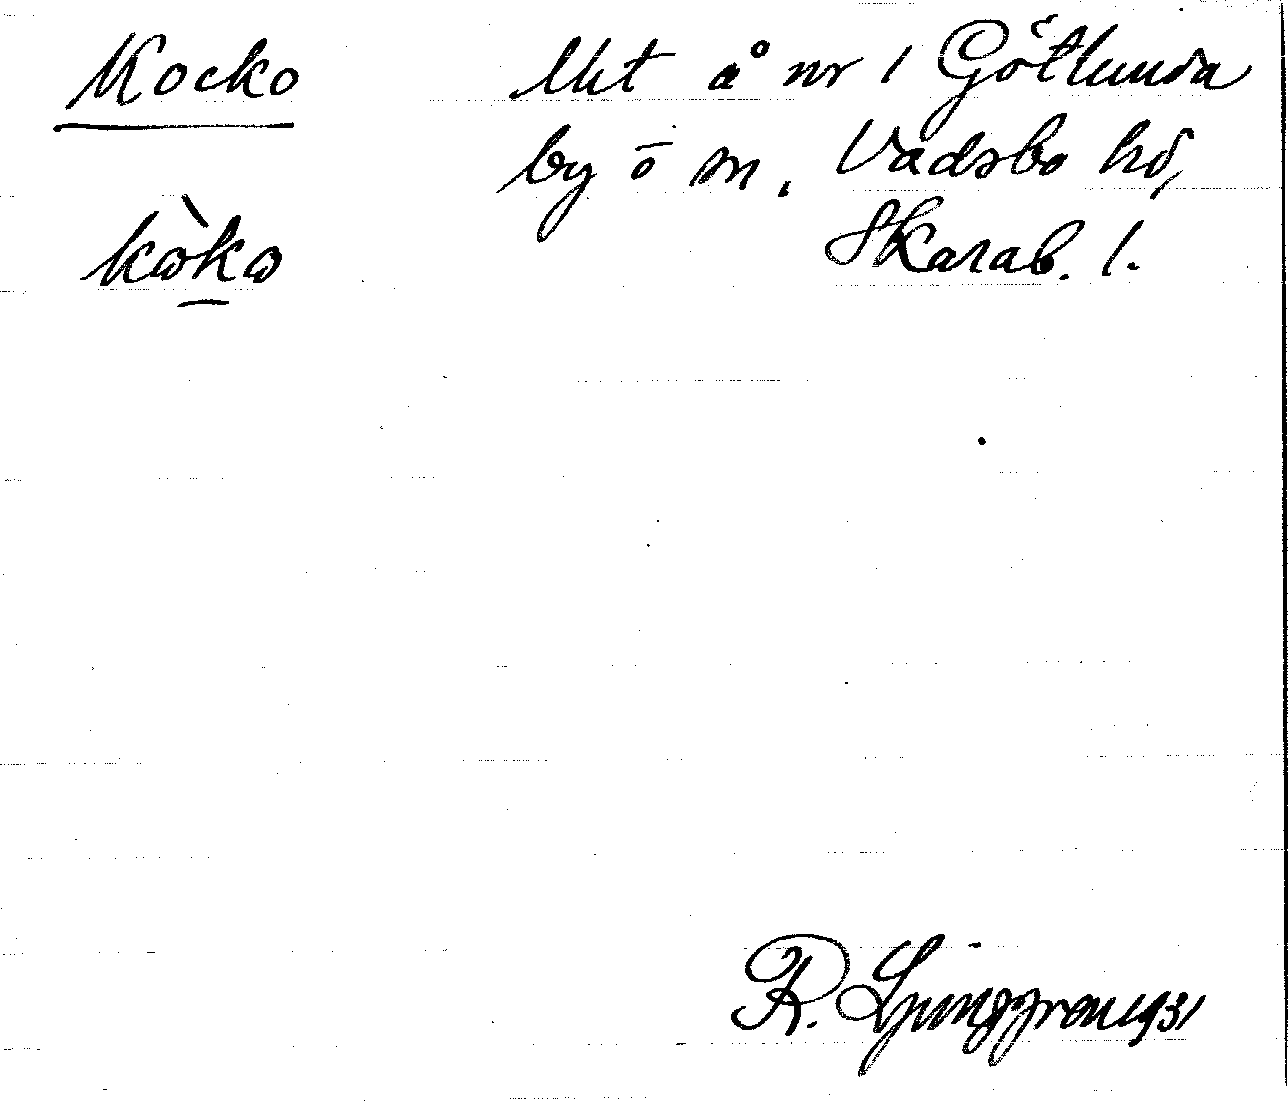 Kocko
Utt å nr 1 Götlunda
by o sn, Vadsbo hd,
kòko
Skarab. l.
R. Ljunggren 1931